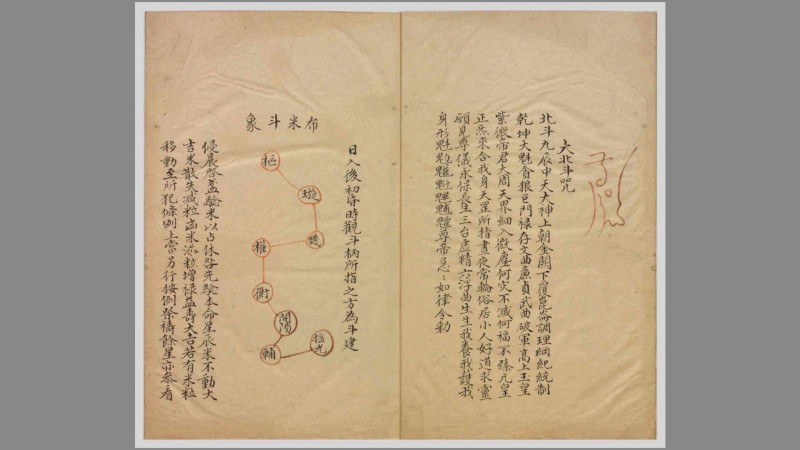 大北斗咒
北斗九辰中天大神上朝金闕下覆崑崙調理綱紀統制
乾坤大魁貪狼巨門禄存文曲廉貞武曲破軍高上玉皇
紫微帝君大周天界細入微塵何灾不滅何福不臻元皇
正炁来合我身天罡所指晝夜常輪俗居小人好道求靈
願見尊儀永保長生三台虛精六淳曲生生我養我護我
身形魁尊帝急〻如律令勑
日入後初昏時觀斗柄所指之方為斗建
布米斗象
樞
璇
璣
權
衡
開陽
輔
揺光
侵晨啓蓋驗米以占休咎先驗本命星辰米不動大
吉米散失減粒凶米添粒增禄益壽大吉若有米粒
移動至所犯條例上當另行按例祭禱餘星亦叅看